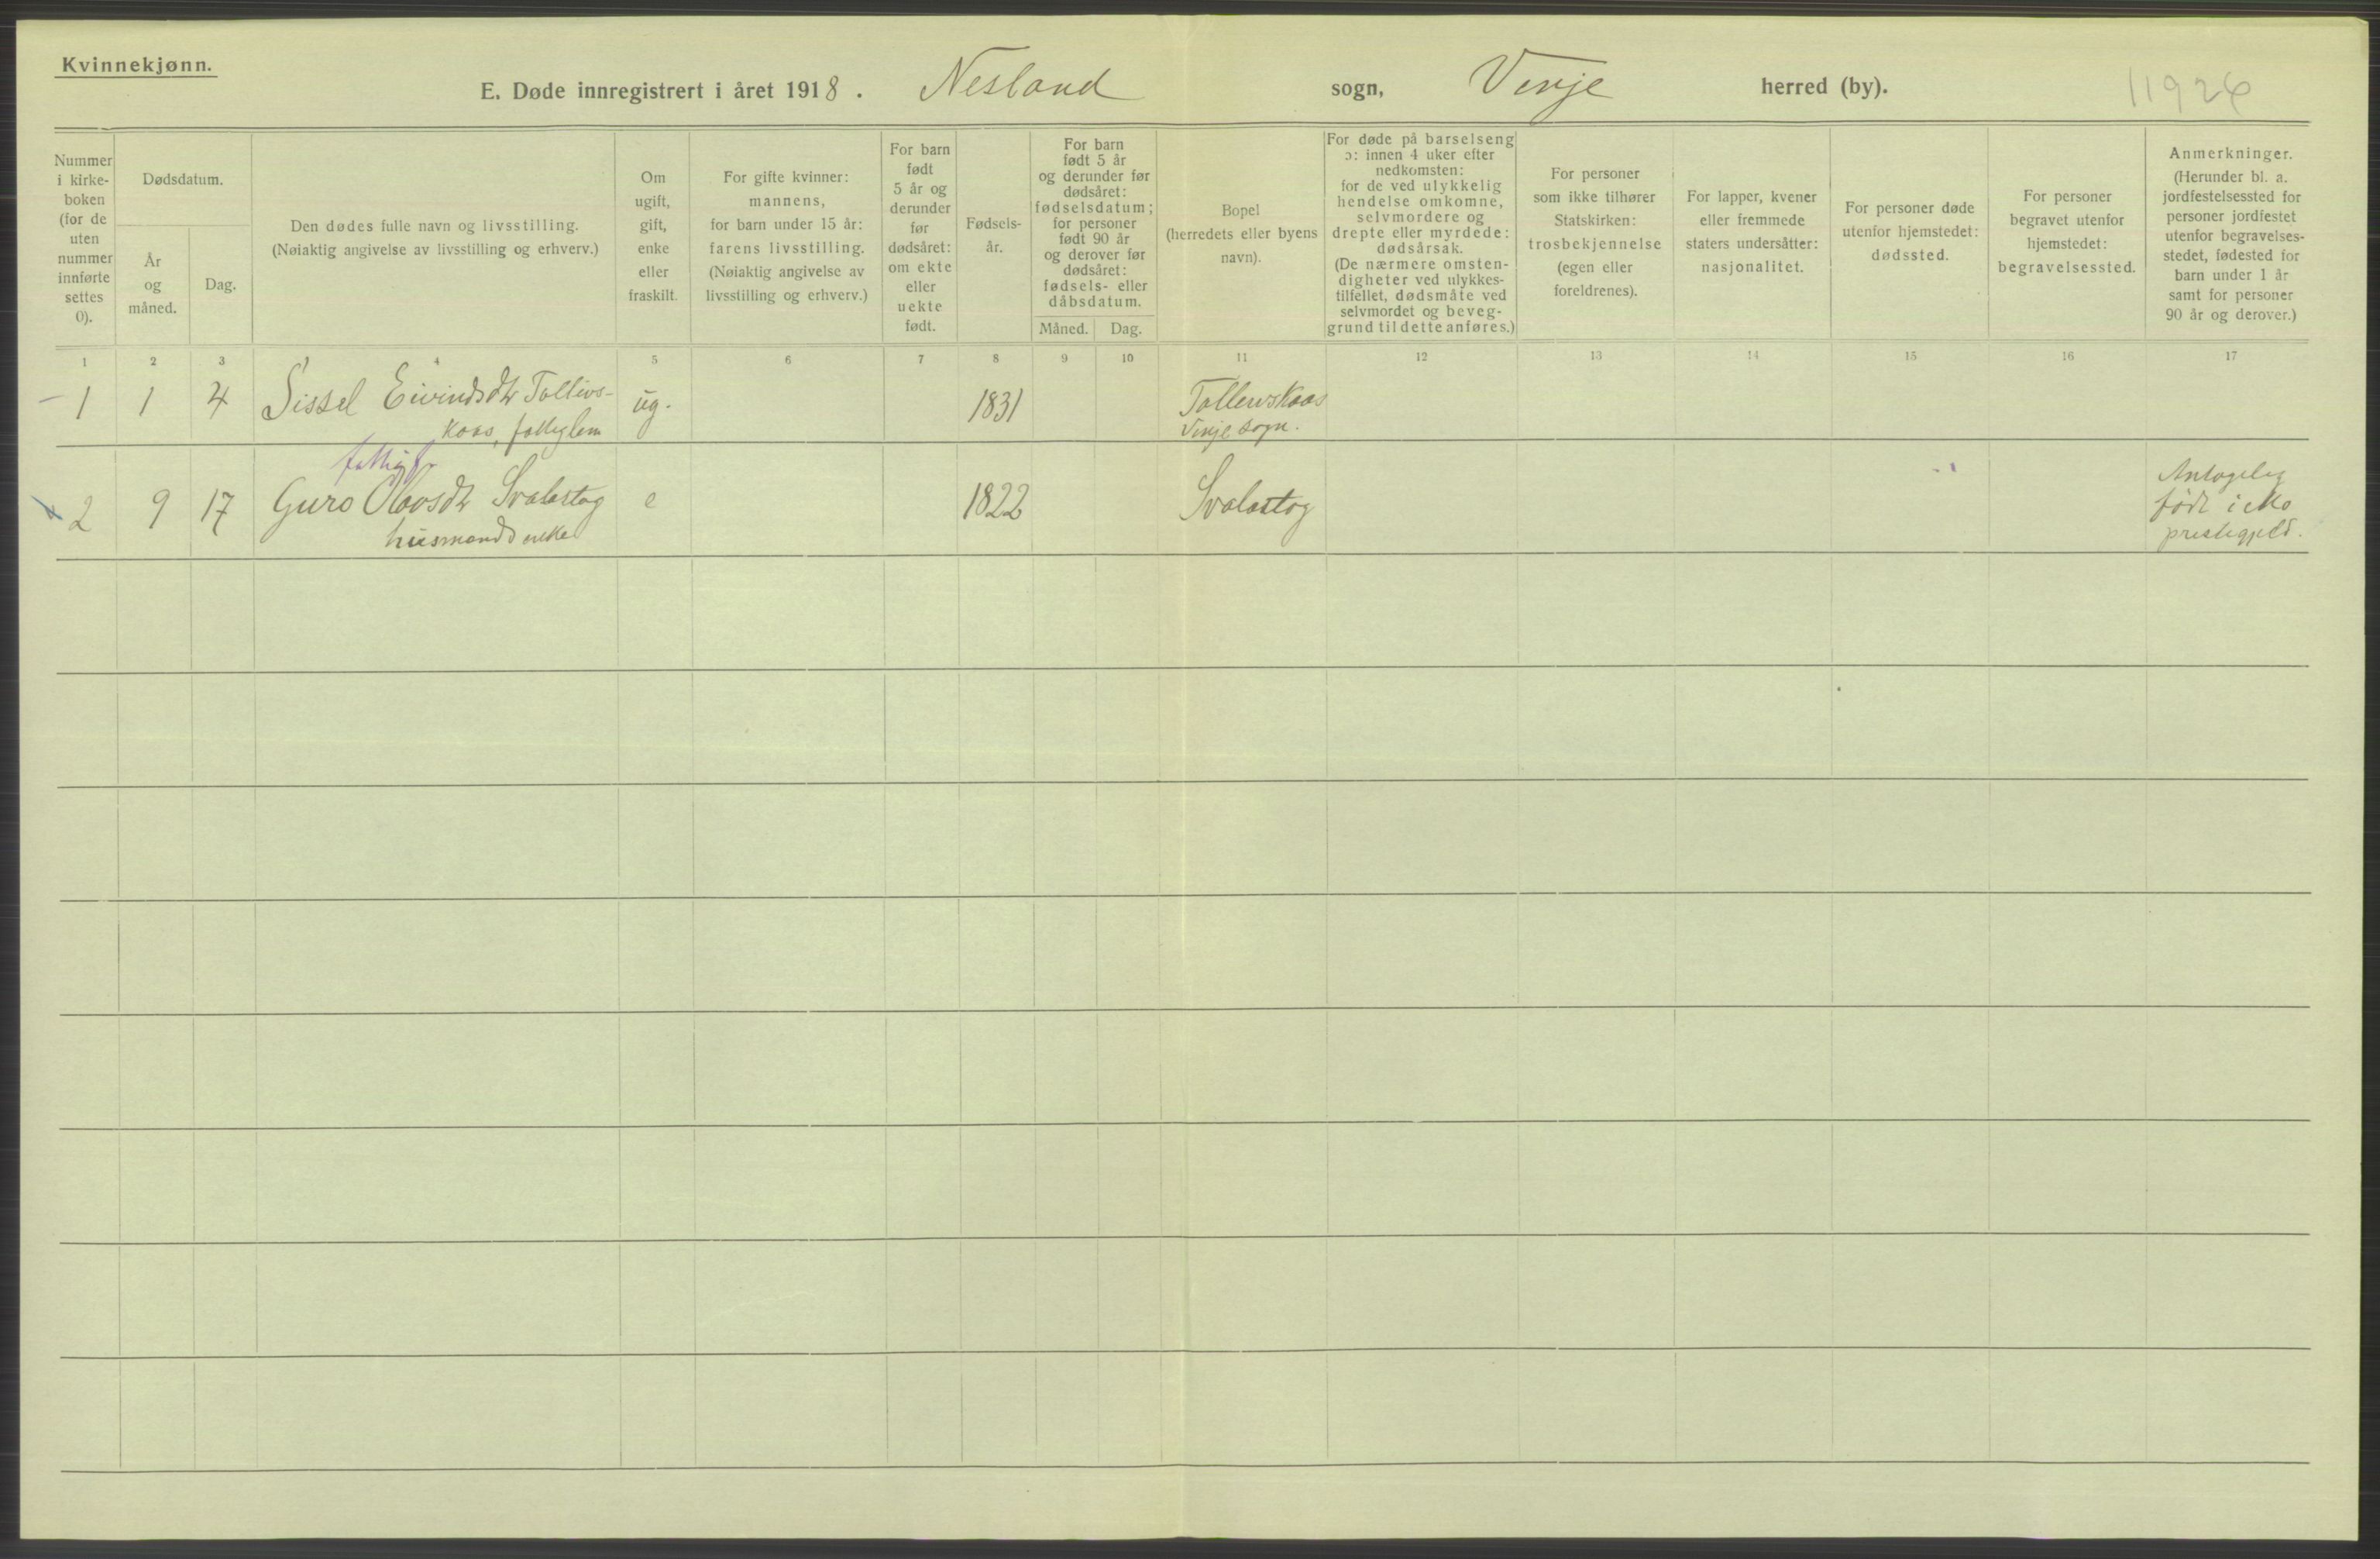 Kvinnekjønn.
E. Døde innregistrert i året 1918. Nesland sogn, Vinje herred (by). 11926
Nummer
i kirke-
boken
(for de
uten
nummer
innførte
settes
0).
Dødsdatum.
År
og
måned.
Dag.
Den dødes fulle navn og livsstilling.
(Nøiaktig angivelse av livsstilling og erhverv.)
Om
ugift,
gift,
enke
eller
fraskilt.
For gifte kvinner:
mannens,
for barn under 15 år:
farens livsstilling.
(Nøiaktig angivelse av
livsstilling og erhverv.)
For barn
født
5 år og
derunder
før
dødsåret:
om ekte
eller
uekte
født.
Fødsels-
år.
For barn
født 5 år
og derunder før
dødsåret:
fødselsdatum;
for personer
født 90 år
og derover før
dødsåret:
fødsels- eller
dåbsdatum.
Måned. Dag.
Bopel
(herredets eller byens
navn).
For døde på barselseng
ɔ: innen 4 uker efter
nedkomsten:
for de ved ulykkelig
hendelse omkomne,
selvmordere og
drepte eller myrdede:
dødsårsak.
(De nærmere omsten-
digheter ved ulykkes-
tilfellet, dødsmåte ved
selvmordet og beveg-
grund til dette anføres.)
For personer
som ikke tilhører
Statskirken:
trosbekjennelse
(egen eller
foreldrenes).
For lapper, kvener
eller fremmede
staters undersåtter:
nasjonalitet.
For personer døde
utenfor hjemstedet:
dødssted.
For personer
begravet utenfor
hjemstedet:
begravelsessted.
Anmerkninger.
(Herunder bl. a.
jordfestelsessted for
personer jordfestet
utenfor begravelses-
stedet, fødested for
barn under 1 år
samt for personer
90 år og derover.)
1 2 3 4 5 6 7 8 9 10 11 12 13 14 15 16 17
1 1 4 Sissel Eivindsdtr Tollivs- ug. 1831 Tollevskaas
kaas, fattiglem Vinje sogn.
2 9 17 Guro Olavsdtr Svalastog e 1822 Svalastog
husmandsenke
Antagelig
født i Mo
prestegjeld.